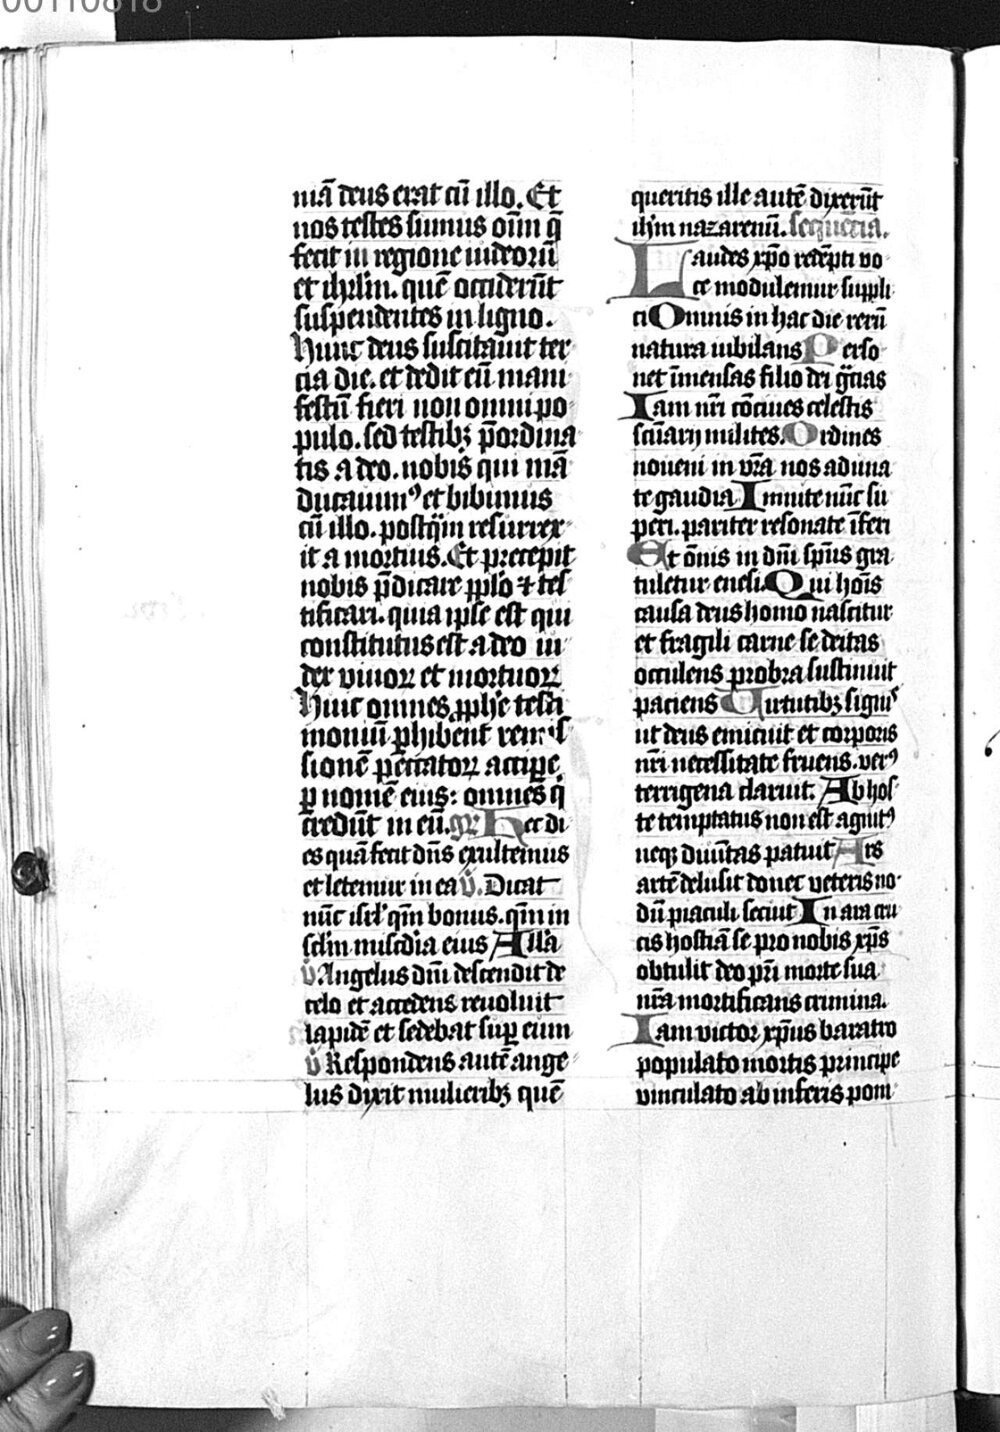 00110818
niā deus erat cū illo. Et
nos testes sumus oīm q̄
fecit in regione iudeorū
et ihrlm̄. quē occiderūt
suspendentes in ligno.
Hunc deus suscitauit ter
cia die. et dedit eū mani
festū fieri non omni po
pulo. sed testibꝫ p̄ordina
tis a deo. nobis qui mā
ducauimꝰ et bibimus
cū illo. postq̄m resurrex
it a mortuis. Et precepit
nobis p̄dicare pplo ⁊ tes
tificari. quia ipse est qui
constitutus est a deo iu
dex viuoꝝ et mortuoꝝ
Huic omnes ꝓphe testi
moniū ꝑhibent remis
sionē peccatoꝝ accipe
ꝑ nomē eius: omnes q̄
credūt in eū. gr̄ Hec di
es quā fecit dn̄s exultemus
et letemur in ea v̄. Dicat
nūc isrl̄ qm̄ bonus. qm̄ in
sclm̄ miscd̄ia eius All̄a
v̄ Angelus dn̄i descendit de
celo et accedens reuoluit
lapidē et sedebat suꝑ eum
v̄ Respondens autē ange
lus dixit mulieribꝫ quē
queritis ille autē dixerūt
ihm̄ nazarenū. sequētia.
Laudes xp̄o redēpti vo
ce modulemur suppli
ci Omnis in hac die rerū
natura iubilans Perso
net īmensas filio dei gr̄cias
Iam nr̄i cōciues celestis
sciuarij milites. Ordines
noueni in vr̄a nos aduna
te gaudia Innuite nūc su
peri. pariter resonate īferi
Et ōnis in dn̄i sp̄us gra
tuletur enesi. Qui hoīs
causa deus homo nascitur
et fragili carne se deitas
occulens probra sustinuit
paciens Uirtutibꝫ signis
ut deus emicuit et corporis
nr̄i necessitate fruens. verꝰ
terrigena claruit. Ab hos
te temptatus non est agnitꝰ
neqꝫ diuītas patuit Ars
artē delusit donec veteris no
dū piaculi sciuit In ara cru
cis hostiā se pro nobis xp̄s
obtulit deo pr̄i morte sua
nr̄a mortificans crimina.
Iam victor xp̄ius baratro
populato mortis principe
vinculato ab inferis pom